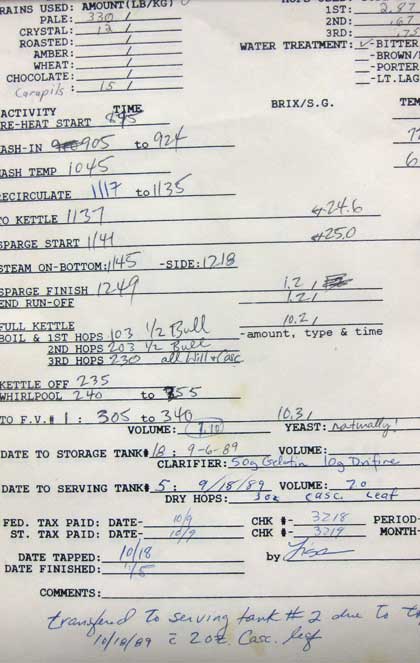 RAINS USED: AMOUNT(LB/KG)
PALE: 330 /
1ST: 2.87
CRYSTAL: 12 /
2ND: .67
ROASTED: /
3RD: .75
AMBER: /
WATER TREATMENT: ✓-BITTER
WHEAT: /
-BROWN/
CHOCOLATE: /
-PORTER
Carapils : 15 /
-LT.LAG
ACTIVITY TIME BRIX/S.G. TEM
RE-HEAT START
ASH-IN 905 to 924
ASH TEMP 1045
RECIRCULATE 1117 to 1135
TO KETTLE 1137 24.6
SPARGE START 1141 25.0
STEAM ON-BOTTOM: 1145 -SIDE: 1218
SPARGE FINISH 1249 1.2 /
END RUN-OFF 1.2 /
FULL KETTLE 10.2 /
BOIL & 1ST HOPS 103 1/2 Bull -amount, type & time
2ND HOPS 203 1/2 Bull
3RD HOPS 230 all Will & Casc
KETTLE OFF 235
WHIRLPOOL 240 to 255
TO F.V.# 1 : 305 to 340 10.3 /
VOLUME: 7.10 YEAST: naturally!
DATE TO STORAGE TANK# 1B : 9-6-89 VOLUME:
CLARIFIER: 50g Gelatin 10g Drifine
DATE TO SERVING TANK# 5 : 9/18/89 VOLUME: 7.0
DRY HOPS: 3oz casc. leaf
FED. TAX PAID: DATE- 10/9 CHK #- 3218 PERIOD-
ST. TAX PAID: DATE- 10/9 CHK #- 3219 MONTH-
DATE TAPPED: 10/18 by
DATE FINISHED: 1/5
COMMENTS:
transfered to serving tank # 2 due to
10/18/89 c̄ 2oz. Casc. leaf